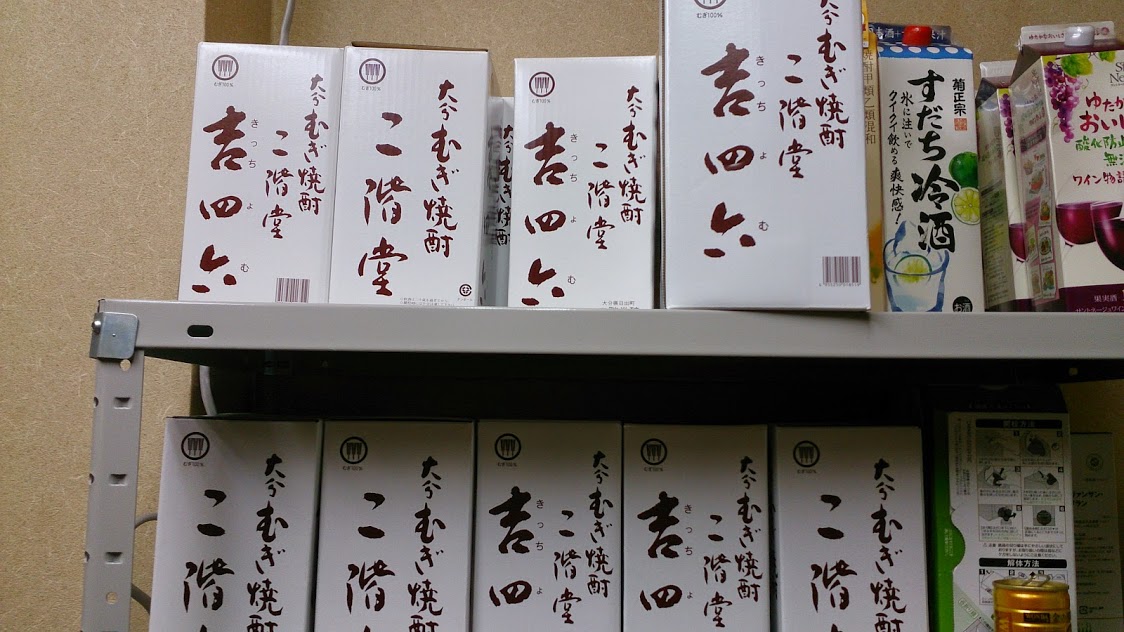 むぎ100%
大分むぎ焼酎
二階堂
吉四六
きっちょむ
むぎ100%
大分むぎ焼酎
二階堂
大分むぎ焼
むぎ100%
大分むぎ焼酎
二階堂
吉四六
きっちょむ
むぎ100%
大分むぎ焼酎
二階堂
吉四六
きっちょむ
焼酎甲類乙類混和
菊正宗
すだち冷酒
氷に注いで
クイクイ飲める爽快感!
お酒
ゆたか
おいし
酸化防止
無
ワイン物語
果実酒
むぎ100%
大分むぎ焼
二階
むぎ100%
大分むぎ焼酎
二階
むぎ100%
大分むぎ焼酎
二階堂
吉四
きっちょ
むぎ100%
大分むぎ焼酎
二階堂
吉四
きっちょ
むぎ100%
大分むぎ焼酎
二階
開栓方法
解体方法